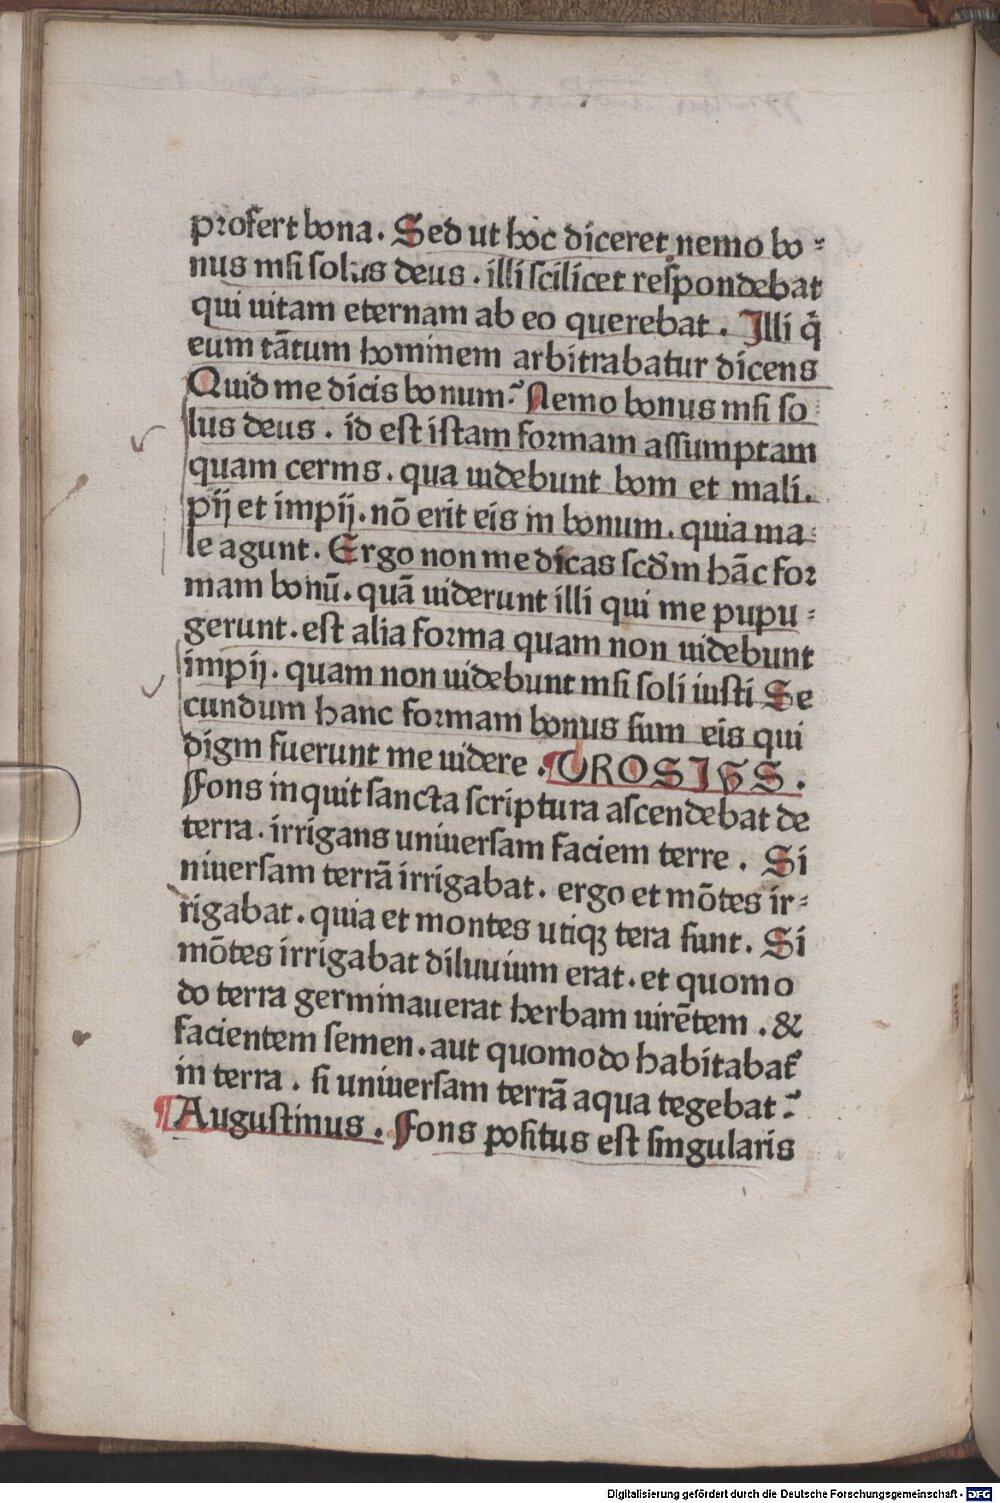 profert bona. Sed ut hoc diceret nemo bo⸗
nus nisi solus deus. illi scilicet respondebat
qui uitam eternam ab eo querebat. Illi q̄
eum tātum hominem arbitrabatur dicens
Quid me dicis bonum? Nemo bonus nisi so⸗
lus deus. id est istam formam assumptam
quam cernis. qua uidebunt boni et mali.
pij et impij. nō erit eis in bonum. quia ma⸗
le agunt. Ergo non me dicas scd̄m hāc for
mam bonū. quā uiderunt illi qui me pupu⸗
gerunt. est alia forma quam non uidebunt
impij. quam non uidebunt nisi soli iusti Se
cundum hanc formam bonus sum eis qui
digni fuerunt me uidere. ¶OROSIVS.
Fons inquit sancta scriptura ascendebat de
terra. irrigans uniuersam faciem terre. Si
niuersam terrā irrigabat. ergo et mōtes ir⸗
rigabat. quia et montes utiqꝫ tera sunt. Si
mōtes irrigabat diluuium erat. et quomo
do terra germinauerat herbam uirētem. &
facientem semen. aut quomodo habitabat᷑
in terra. si uniuersam terrā aqua tegebat?
¶Augustinus. Fons positus est singularis
Digitalisierung gefördert durch die Deutsche Forschungsgemeinschaft - DFG